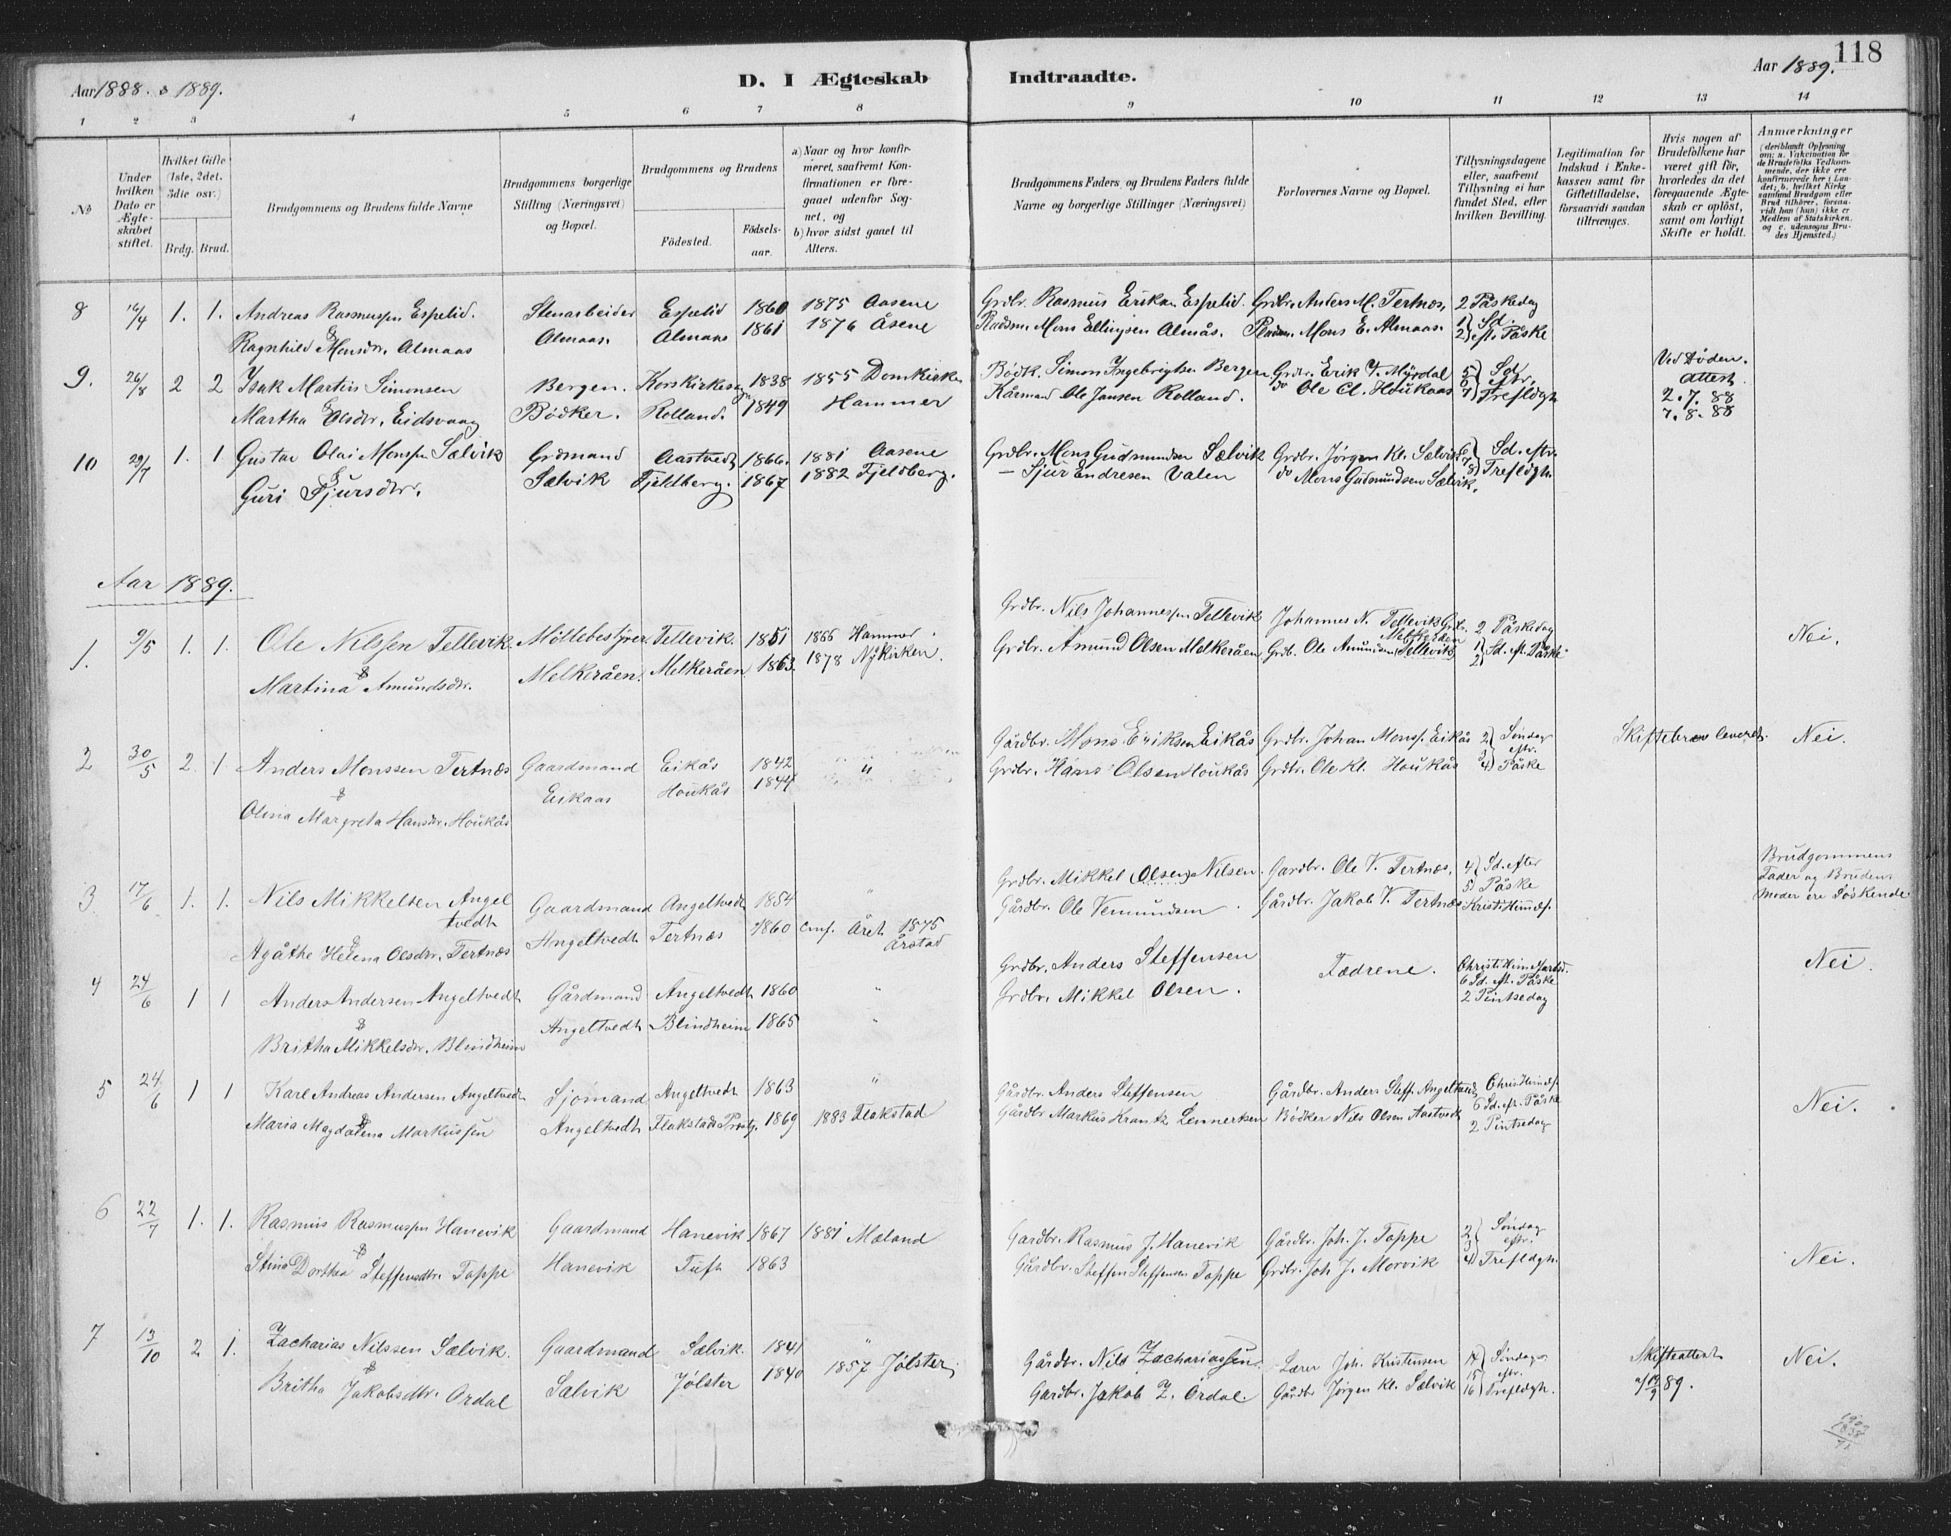 118
Aar 1888. & 1889.
D. I Ægteskab
Indtraadte.
Aar 1889.
1 2 3 4 5 6 7 8 9 10 11 12 13 14
No
Under hvilken Dato er Ægteskabet stiftet.
Hvilket Gifte (1ste, 2det. 3die osv.)
Brdg. Brud.
Brudgommens og Brudens fulde Navne
Brudgommens borgerlige Stilling (Næringsvei) og Bopæl.
Brudgommens og Brudens
Fødested.
Fødselsaar.
a) Naar og hvor konfirmeret, saafremt Konfirmationen er foregaaet udenfor Sognet, og
b) hvor sidst gaaet til Alters.
Brudgommens Faders og Brudens Faders fulde Navne og borgerlige Stillinger (Næringsvei)
Forlovernes Navne og Bopæl.
Tillysningsdagene eller, saafremt Tillysning ei har fundet Sted, efter hvilken Bevilling.
Legitimation for Indskud i Enkekassen samt for Giftetilladelse, forsaavidt saadan tiltrænges.
Hvis nogen af Brudefolkene har været gift før, hvorledes da det foregaaende Ægteskab er opløst, samt om lovligt Skifte er holdt.
Anmærkninger (deriblandt Oplysning om: a. Vakcination for de Brudefolks Vedkommende, der ikke ere konfirmerede her i Landet; b. hvilket Kirkesamfund Brudgom eller Brud tilhører, forsaavidt han (hun) ikke er Medlem af Statskirken, og c. udensogns Brudes Hjemsted.)
8 16/4 1. 1. Andreas Rasmussen Espelid. Stenarbeider Espelid 1860 1875 Aasene Grdbr. Rasmus Eriksen Espelid. Grdbr. Anders M. Tertnæs, 2 Påskedag
& Ragnhild Monsdr. Almaas Almaas. Almaas 1861 1876 Åsene Pladsm. Mons Ellingsen Almås. Pladsm. Mons E. Almaas. 1 2 } Sd. eft. Påske
9. 26/8 2 2 Isak Martin Simonsen Bergen. Korskirkesogn 1838 1855 Domkirken Bødk. Simon Ingebrigtsen Bergen Grdbr. Erik T. Myrdal 5 6 7 } Sd eftr. Trefldgh Ved Døden. Attest 2. 7. 88 7. 8. 88
& Martha Olsdr. Eidsvaag Bødker. Rolland. 1849 Hammer Kårmand Ole Jansen Rolland. do Ole Cl. Houkaas
10 29/7 1. 1. Gustav Olai Monsen Sælvik Grdmand Aastvedt 1866. 1881 Aasene Grdbr. Mons Gudmundsen Sælvik Grdbr. Jørgen Kl. Sælvik 6 7 8 } Sd. eftr. Trefldgh.
& Guri Sjursdtr. Sælvik Fjeldberg. 1867 1882 Fjeldberg. — Sjur Endresen Valen do Mons Gudmundsen Sælvik.
Aar 1889.
1. 9/5 1. 1. Ole Nilssen Tellevik. Møllebestyrer Tellevik. 1851 1866 Hammer. Grdbr. Nils Johannessen Tellevik Johannes N. Tellevik Grdbr. 2 Påskedag Nei.
& Martina Amundsdr. Melkeråen. Melkeråen 1863. 1878 Nykirken. Grdbr. Amund Olsen Melkeråen Grdb. Ole Amundsen Melkeråen (Tellevik) 1 2 } Sd. eft. Påske
2 30/5 2. 1 Anders Monssen Tertnæs Gaardmand Eikås 1842 " Gårdbr. Mons Eriksen Eikås Grdbr. Johan Monss. Eikås 2 3 4 } Søndag eftr. Påske Skiftebrev leveret. Nei.
& Olina Margreta Hansdr. Houkås Eikaas Houkås 1844 " Grdbr. Hans Olsen Houkås Grdbr. Ole Kl. Houkås
3 17/6 1. 1. Nils Mikkelsen Angeltvedt Gaardmand Angeltvedt 1854 " Grdbr. Mikkel (Olsen) Nilsen. Gardbr. Ole V. Tertnæs. 4 5 } Sd. efter Påske Kristi Himlf. Brudgommens Fader og Brudens Moder ere Søskende
& Agåthe Helena Olsdtr. Tertnæs Angeltvedt Tertnæs 1860 conf. Året 1875 Årstad Gårdbr. Ole Vemundsen. Gårdbr. Jakob V. Tertnæs
4 24/6 1 1 Anders Andersen Angeltvedt Gårdmand Angeltvedt 1860 " Grdbr. Anders Steffensen Fædrene. Christi Himlfartsd. 6 Sd. eft. Påske 2 Pintsedag Nei.
& Britha Mikkelsdr. Blindheim Angeltvedt Blindheim 1865 " Grdbr. Mikkel Olsen.
5 24/6 1 1 Karl Andreas Andersen Angeltvedt Sjømand Angeltvedt 1863 " Gårdbr. Anders Steffensen Gårdbr. Anders Steff. Angeltvedt Chris Himlf. 6 Sd. eft. Påske 2 Pintsedag Nei.
& Maria Magdalena Markussen Angeltvedt Flakstads Prstg. 1869 1883 Flakstad Gårdbr. Markus Krantz Lennertsen Bødker Nils Olsen Aastvedt
6 22/7 1. 1. Rasmus Rasmussen Hanevik Gaardmand Hanevik 1867 1881 Mæland Gardbr. Rasmus J. Hanevik Gårdbr. Joh. J. Toppe 2 3 4 } Søndag eftr. Trefldgh. Nei.
& Stina Dorthea Steffensdtr. Toppe Hanevik Tuft 1863 Gårdbr. Steffen Steffensen Toppe Grdbr. Joh J. Morvik
7 13/10 2 1. Zacharias Nilssen Sælvik. Gaardmand Sælvik. 1841 " Gårdbr. Nils Zachariassen. Lærer Joh. Kristensen 14 15 16 } Søndag eftr. Trefldgh. Skifteattest Nei.
& Britha Jakobsdtr. Ordal Sælvik Jølster 1840 1857 Jølster. Gardbr. Jakob Z. Ordal. Gårdbr Jørgen Kl. Sælvik a/ 19/9 89.